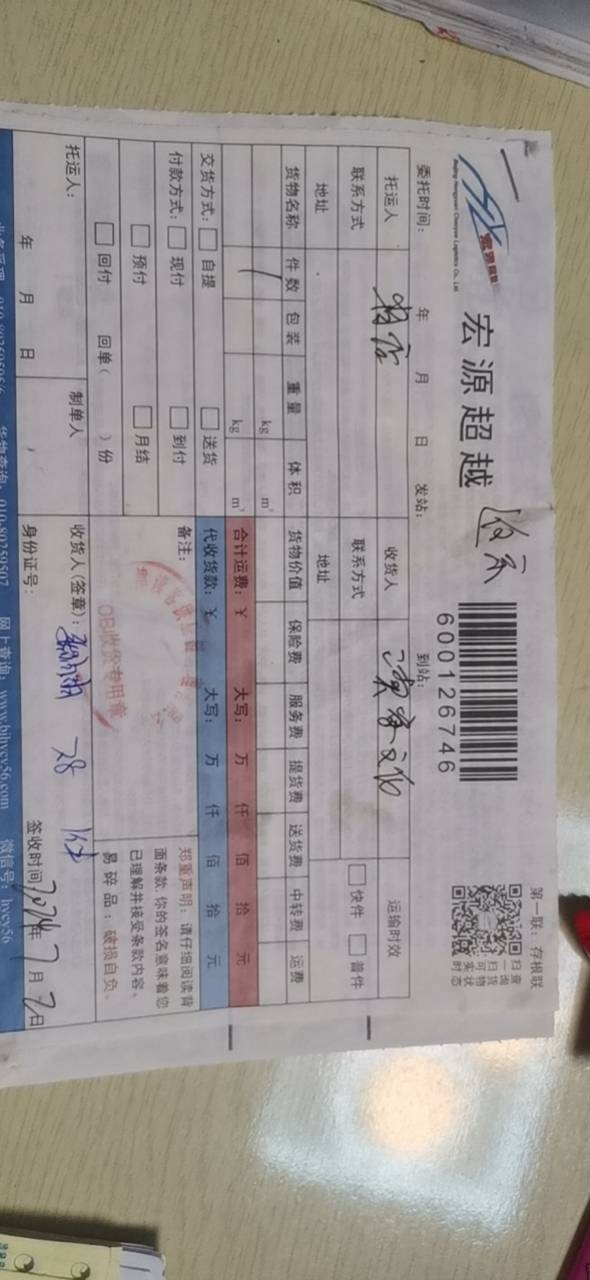 第一联：存根联
宏源超越
Beijing Hongyuan Chaoyue Logistics Co., Ltd
600126746
扫一扫可实时
查询货物状态
委托时间： 年 月 日 发站： 到站：
托运人 收货人 运输时效
联系方式 联系方式 快件 普件
地址 地址
货物名称 件数 包装 重量 体积 货物价值 保险费 服务费 提货费 送货费 中转费 运费
kg m³
1 kg m³ 合计运费：￥ 大写： 万 仟 佰 拾 元
交货方式： 自提 送货 代收货款：￥ 大写： 万 仟 佰 拾 元
付款方式： 现付 到付 备注：
预付 月结
回付 回单（ ）份
收货专用章
郑重声明：请仔细阅读背
面条款，你的签名意味着您
已理解并接受条款内容。
易碎品：破损自负。
托运人： 制单人 收货人(签章)： 28
年 月 日 身份证号： 签收时间 2024年7月2日
货物查询：010-80259507 网上查询：www.bjhycy56.com 微信号：hycy56